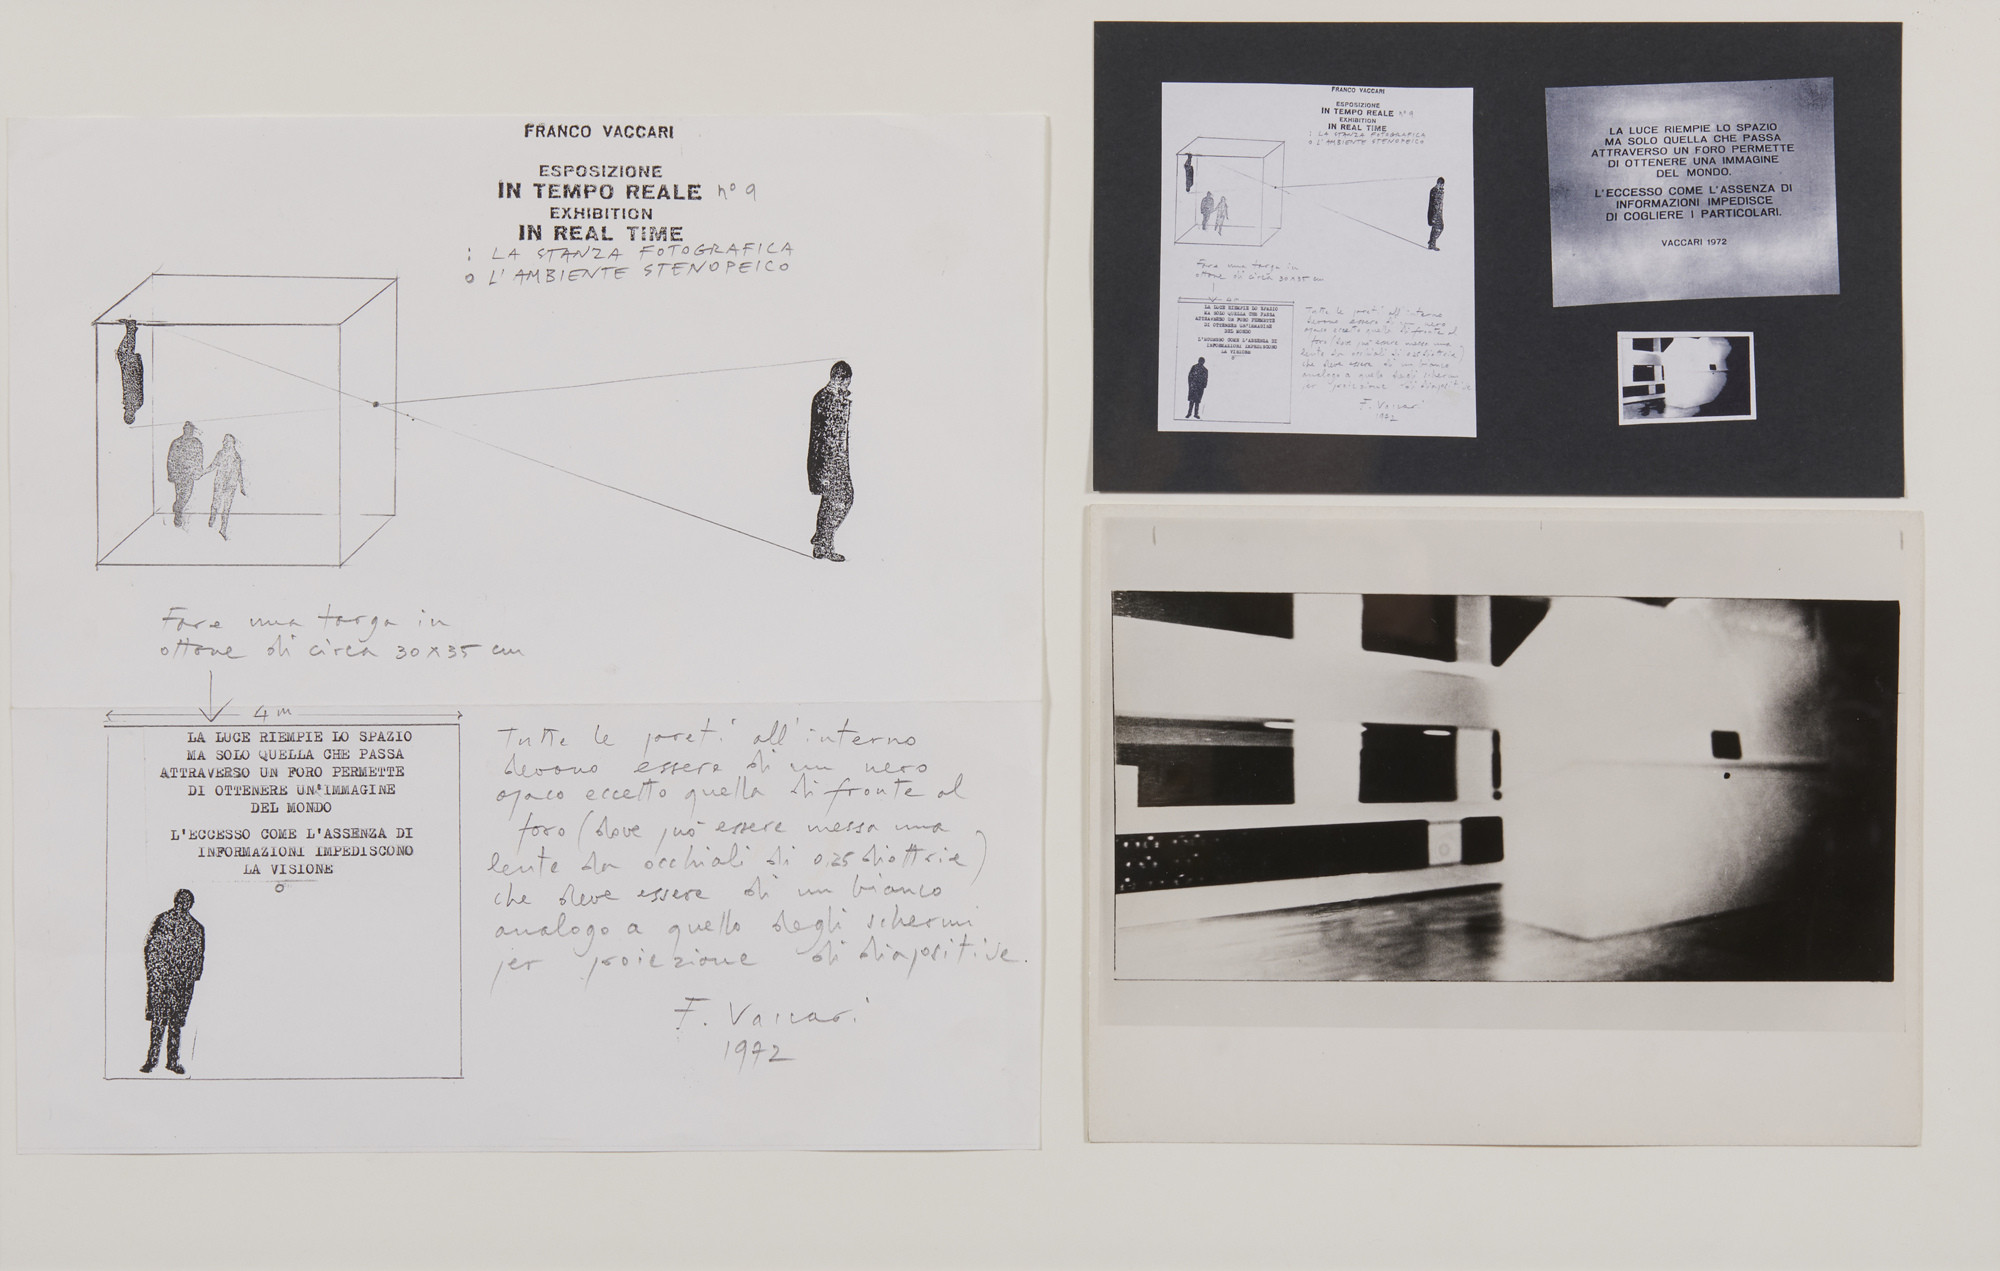 FRANCO VACCARI
ESPOSIZIONE
IN TEMPO REALE nº 9
EXHIBITION
IN REAL TIME
: LA STANZA FOTOGRAFICA
o L'AMBIENTE STENOPEICO
Fare una targa in
ottone di circa 30x35 cm
4 m
LA LUCE RIEMPIE LO SPAZIO
MA SOLO QUELLA CHE PASSA
ATTRAVERSO UN FORO PERMETTE
DI OTTENERE UN'IMMAGINE
DEL MONDO
L'ECCESSO COME L'ASSENZA DI
INFORMAZIONI IMPEDISCONO
LA VISIONE
Tutte le pareti all'interno
devono essere di un nero
opaco eccetto quella di fronte al
foro (dove può essere messa una
lente da occhiali di 0,25 diottrie)
che deve essere di un bianco
analogo a quello degli schermi
per proiezione di diapositive.
F. Vaccari
1972
FRANCO VACCARI
ESPOSIZIONE
IN TEMPO REALE nº 9
EXHIBITION
IN REAL TIME
: LA STANZA FOTOGRAFICA
o L'AMBIENTE STENOPEICO
Fare una targa in
ottone di circa 30x35 cm
4 m
LA LUCE RIEMPIE LO SPAZIO
MA SOLO QUELLA CHE PASSA
ATTRAVERSO UN FORO PERMETTE
DI OTTENERE UN'IMMAGINE
DEL MONDO
L'ECCESSO COME L'ASSENZA DI
INFORMAZIONI IMPEDISCONO
LA VISIONE
Tutte le pareti all'interno
devono essere di un nero
opaco eccetto quella di fronte al
foro (dove può essere messa una
lente da occhiali di 0,25 diottrie)
che deve essere di un bianco
analogo a quello degli schermi
per proiezione di diapositive
F. Vaccari
1972
LA LUCE RIEMPIE LO SPAZIO
MA SOLO QUELLA CHE PASSA
ATTRAVERSO UN FORO PERMETTE
DI OTTENERE UNA IMMAGINE
DEL MONDO.
L'ECCESSO COME L'ASSENZA DI
INFORMAZIONI IMPEDISCE
DI COGLIERE I PARTICOLARI.
VACCARI 1972